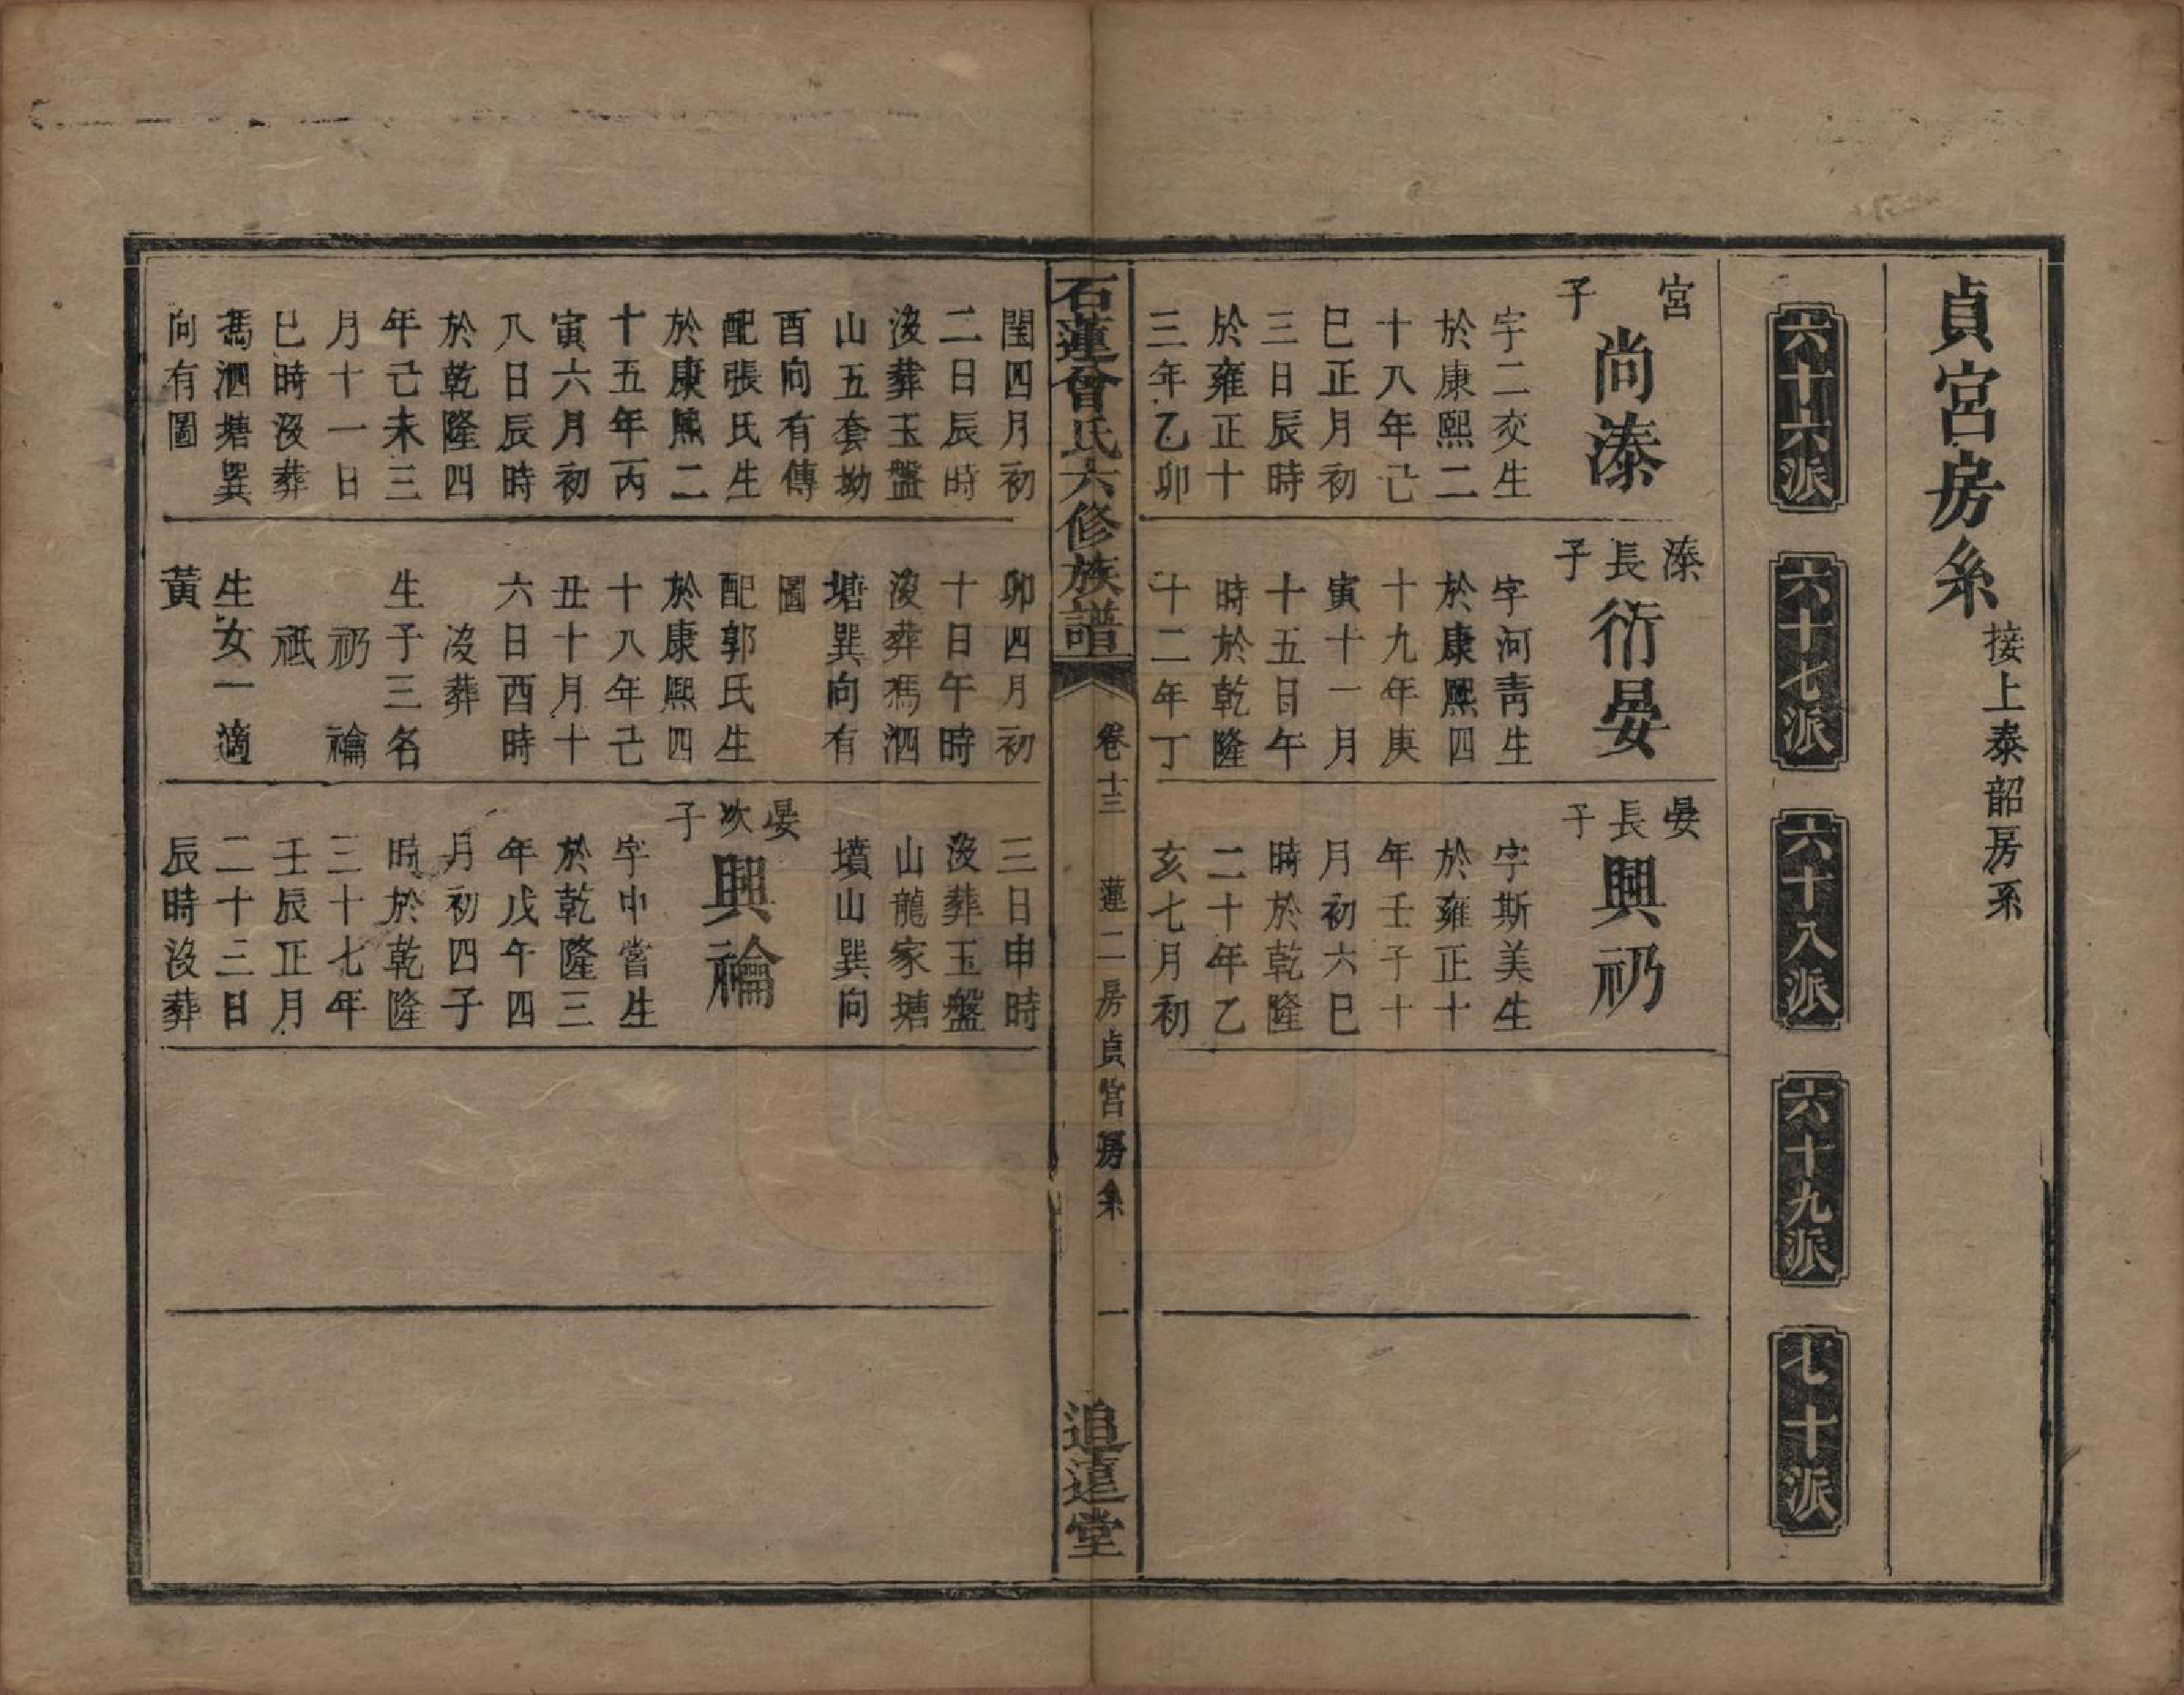 貞宮房系 接上泰韶房系
六十六派
六十七派
六十八派
六十九派
七十派
宮
子
尚溱
字二交生
於康熙二
十八年己
巳正月初
三日辰時
於雍正十
三年乙卯
溱
長
子
衍晏
字河青生
於康熙四
十九年庚
寅十一月
十五日午
時於乾隆
十二年丁
晏
長
子
興礽
字斯美生
於雍正十
年壬子十
月初六巳
時於乾隆
二十年乙
亥七月初
石蓮曾氏六修族譜
卷十三 蓮二房貞宮房系 一
追遠堂
閏四月初
二日辰時
沒葬玉盤
山五套坳
酉向有傳
配張氏生
於康熙二
十五年丙
寅六月初
八日辰時
於乾隆四
年己未三
月十一日
巳時沒葬
馮泗塘巽
向有圖
卯四月初
十日午時
沒葬馮泗
塘巽向有
圖
配郭氏生
於康熙四
十八年己
丑十月十
六日酉時
沒葬
生子三名
礽 禴
祇
生女一適
黃
三日申時
沒葬玉盤
山龍家塘
墳山巽向
晏
次
子
興禴
字中嘗生
於乾隆三
年戊午四
月初四子
時於乾隆
三十七年
壬辰正月
二十三日
辰時沒葬